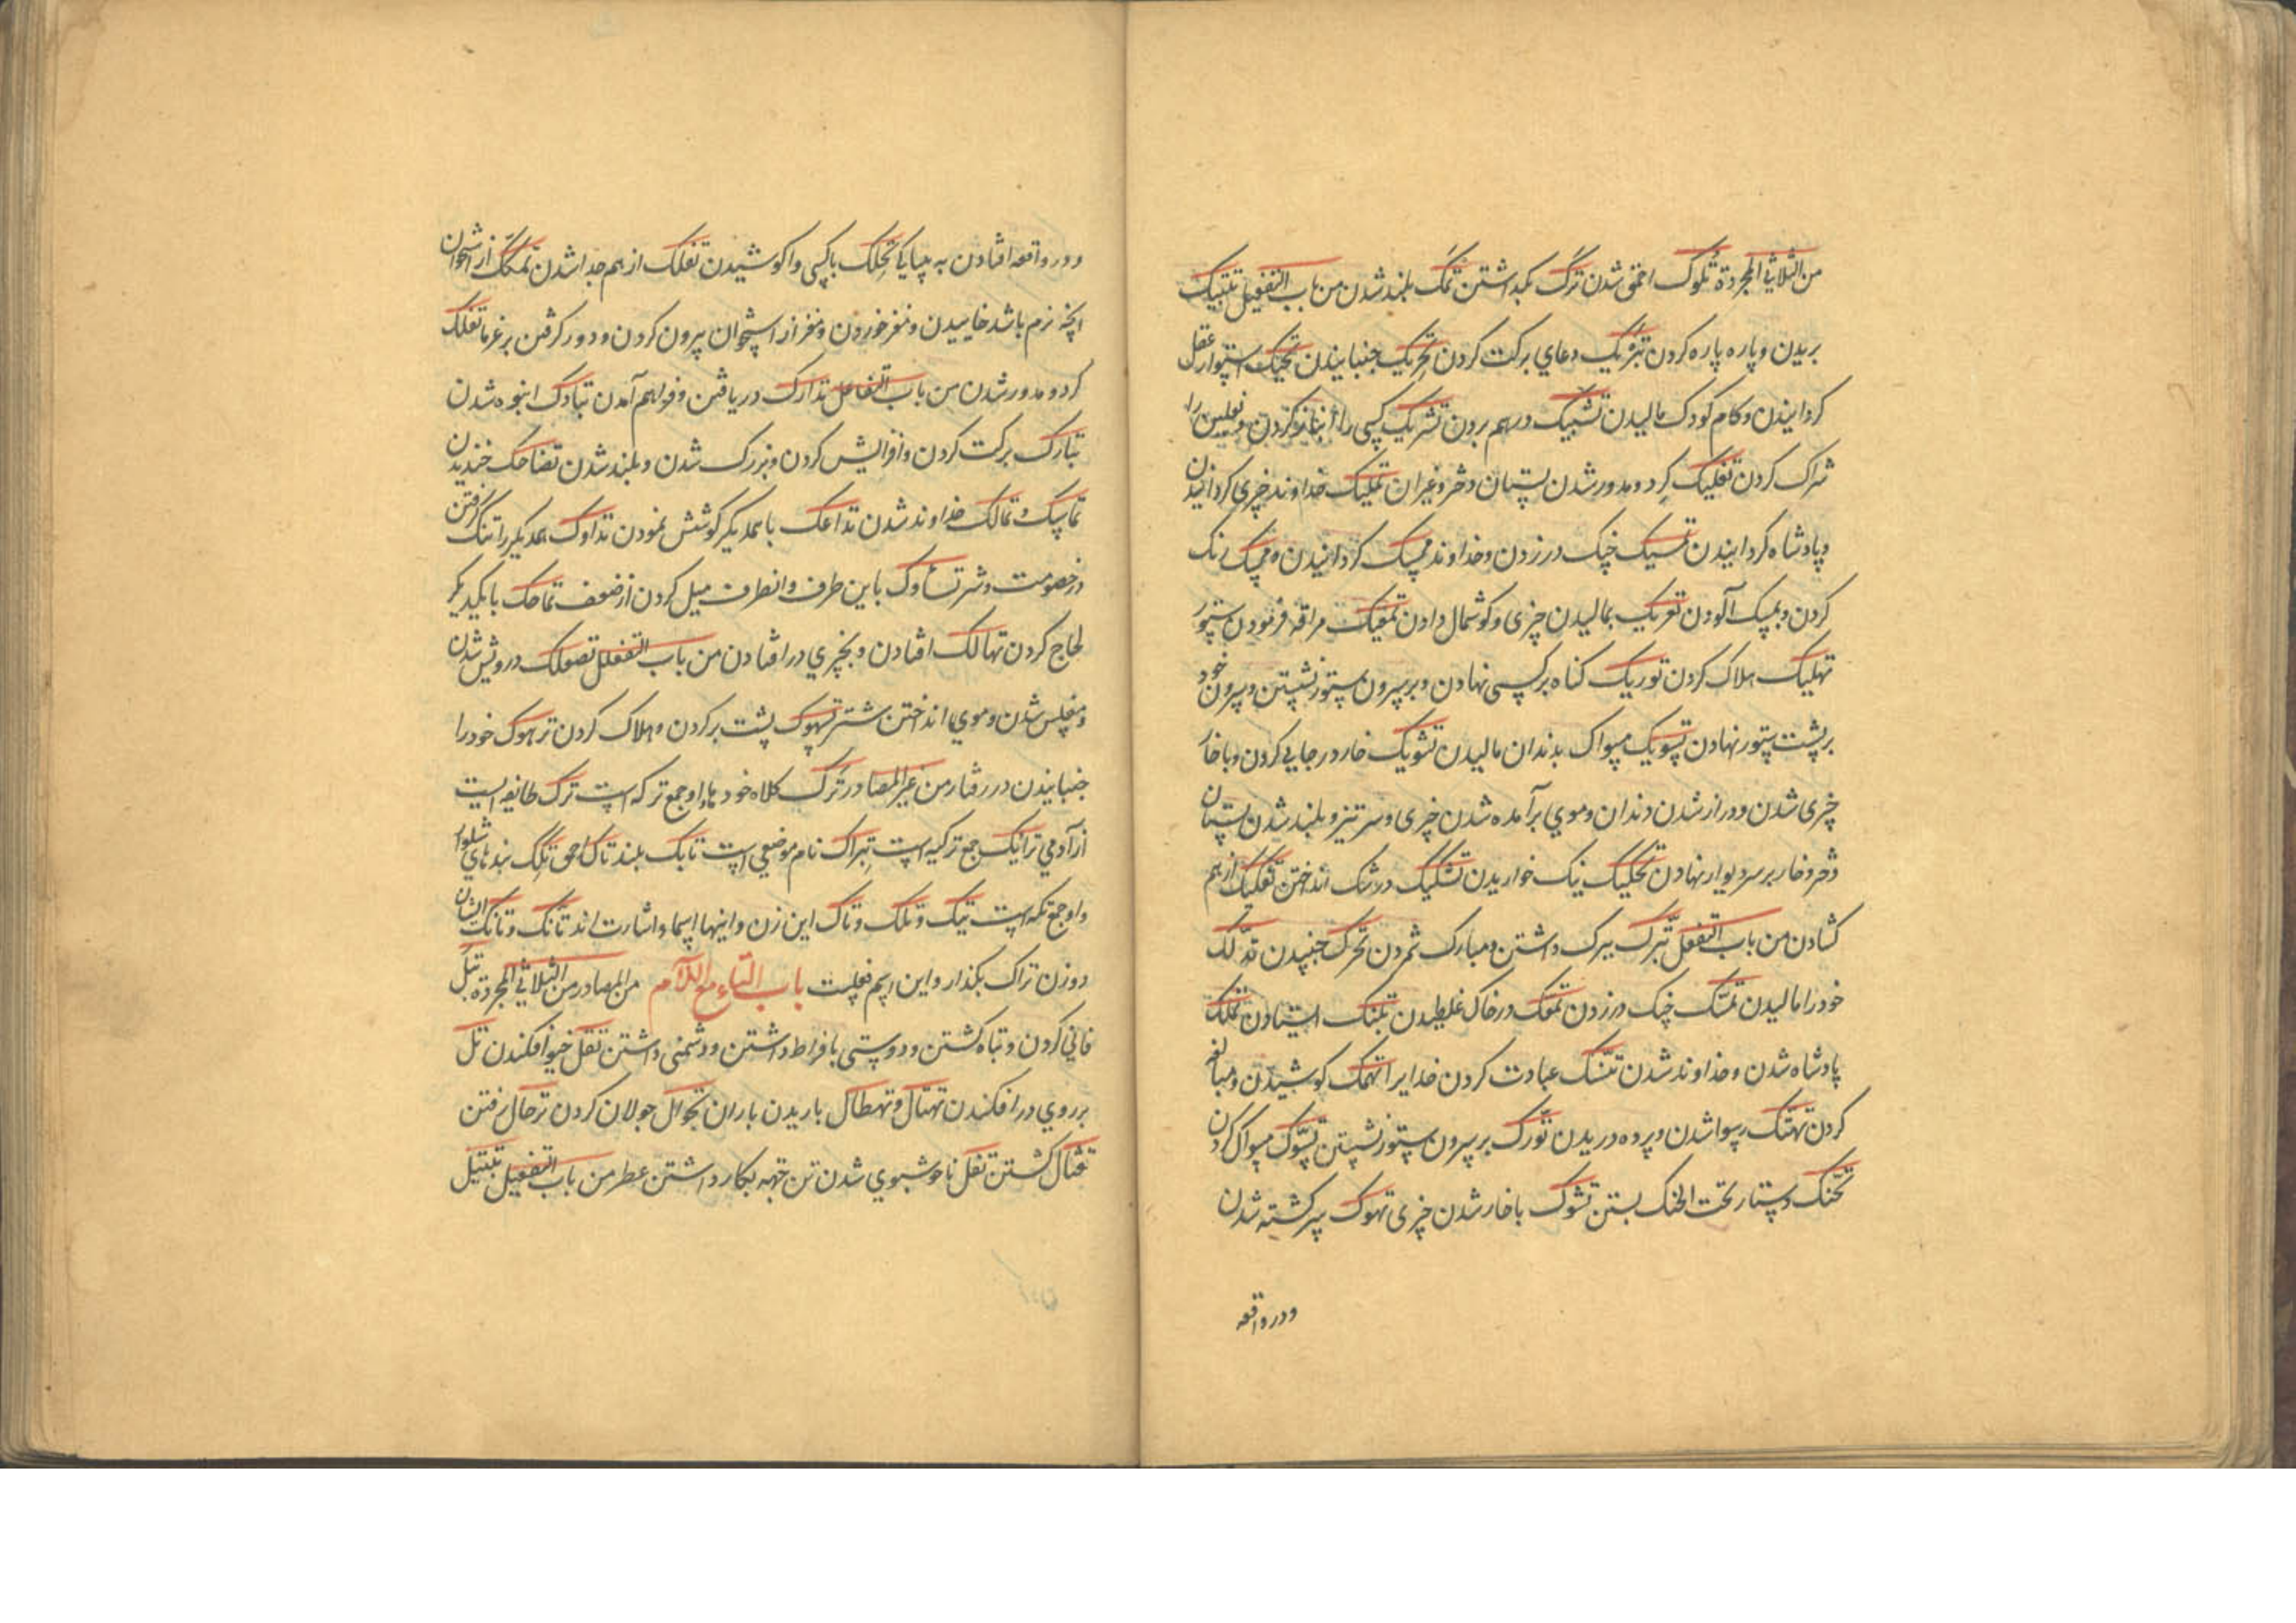 من الثلاثي المجردة تموک احمق شدن ترک بگذاشتن تمک بلند شدن من باب التفعیل تبتیک
بریدن و پاره پاره کردن تبریک دعای برکت کردن تحریک جنبانیدن تحنیک استوار عقل
کردانیدن و کام کودک مالیدن تشبیک درهم بردن تشریک کسی را انباز کردن و نعلین را
شراک کردن تفلیک کرد و مدور شدن پستان دختر و غیر آن تملیک خداوند چیزی کردانیدن
و پادشاه کردانیدن تمسیک چنک در زدن و خداوند مسک کردانیدن و ممسک رنک
کردن و بمسک آلودن تعریک بمالیدن چیزی و کوشمال دادن تمعیک مراقه فرمودن ستور
تهلیک هلاک کردن توریک کناه بر کسی نهادن و بر سرون ستور نشستن و سرون خود
بر پشت ستور نهادن تسویک مسواک بدندان مالیدن تشویک خار در جایی کردن و با خار
چیزی شدن و دراز شدن دندان و موی برآمده شدن چیزی و سرتیز و بلند شدن پستان
دختر و خار بر سر دیوار نهادن تحکیک نیک خواریدن تشکیک در شک انداختن تفکیک از هم
کشادن من باب التفعل تبرک ببرک داشتن و مبارک شمردن تحرک جنبیدن تدلک
خود را مالیدن تمسک چنک در زدن تمعک در خاک غلطیدن تلبک ایستادن تملک
پادشاه شدن و خداوند شدن تنسک عبادت کردن خدایرا تهمک کوشیدن و مبالغه
کردن تهتک رسوا شدن و پرده دریدن تورک بر سرون ستور نشستن تسوک مسواک کردن
تحنک دستار تحت الحنک بستن تشوک با خار شدن چیزی تهوک سرکشته شدن
و در واقعه
و در واقعه افتادن به بیباکی تحلک با کسی واکوشیدن تفکک از هم جدا شدن تمکک از استخوان
آنچه نرم باشد خاییدن و مغز خوردن و مغز از استخوان بیرون کردن و دور کرفتن بر غرما تفلک
کرد و مدور شدن من باب التفاعل تدارک دریافتن و فراهم آمدن تباک انبوه شدن
تبارک برکت کردن و افزایش کردن و بزرک شدن و بلند شدن تضاحک خندیدن
تماسک و تمالک خداوند شدن تداعک با همدیکر کوشش نمودن تداوک همدیکر را تنک کرفتن
در خصومت و شر تساوک باین طرف و آنطرف میل کردن از ضعف تماحک با یکدیکر
لجاج کردن تهالک افتادن و بچیزی در افتادن من باب التفعلل تصعلک درویش شدن
و مفلس شدن و موی انداختن شتر تسهوک پشت بر کردن و هلاک کردن ترهوک خود را
جنبانیدن در رفتار من غیر المصادر ترک کلاه خود ها و او جمع ترکه است ترک طایفه ایست
از آدمی ترایک جمع ترکیه است تبراک نام موضعی است تامک بلند تاک احمق تکک بندهای شلوار
و او جمع تکه است تیک و تلک و تاک این زن و اینها اسماء اشارت اند تانک و تانک ایشان
دو زن تراک بکذار و این اسم فعلست باب التاء مع اللام من المصادر من الثلاثي المجردة تبل
فانی کردن و تباه کشتن و دوستی بافراط داشتن و دشمنی داشتن تفل خیو افکندن تل
بر روی در افکندن تهتال و تهطال باریدن باران تجوال جولان کردن ترحال رفتن
تقتال کشتن تفل ناخوشبوی شدن تن جهه بکار داشتن عطر من باب التفعیل تبتیل